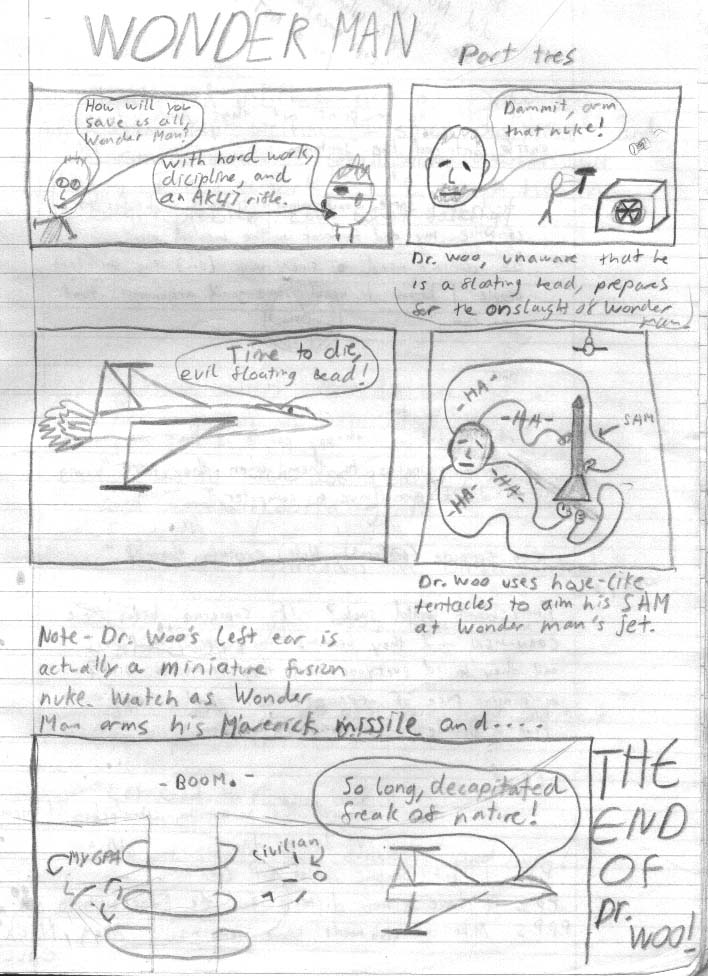 WONDER MAN
Part tres
How will you
save us all,
Wonder Man?
With hard work,
discipline, and
an AK47 rifle.
Dammit, arm
that nuke!
Dr. Woo, unaware that he
is a floating head, prepares
for the onslaught of Wonder
Man.
Time to die,
evil floating head!
-HA-
-HA-
-HA-
-HA-
SAM
Dr. Woo uses hose-like
tentacles to aim his SAM
at Wonder man's jet.
Note - Dr. Woo's left ear is
actually a miniature fusion
nuke. Watch as Wonder
Man arms his Maverick missile and....
-BOOM.-
So long, decapitated
freak of nature!
MY GPA
civilian
THE
END
OF
Dr.
WOO!